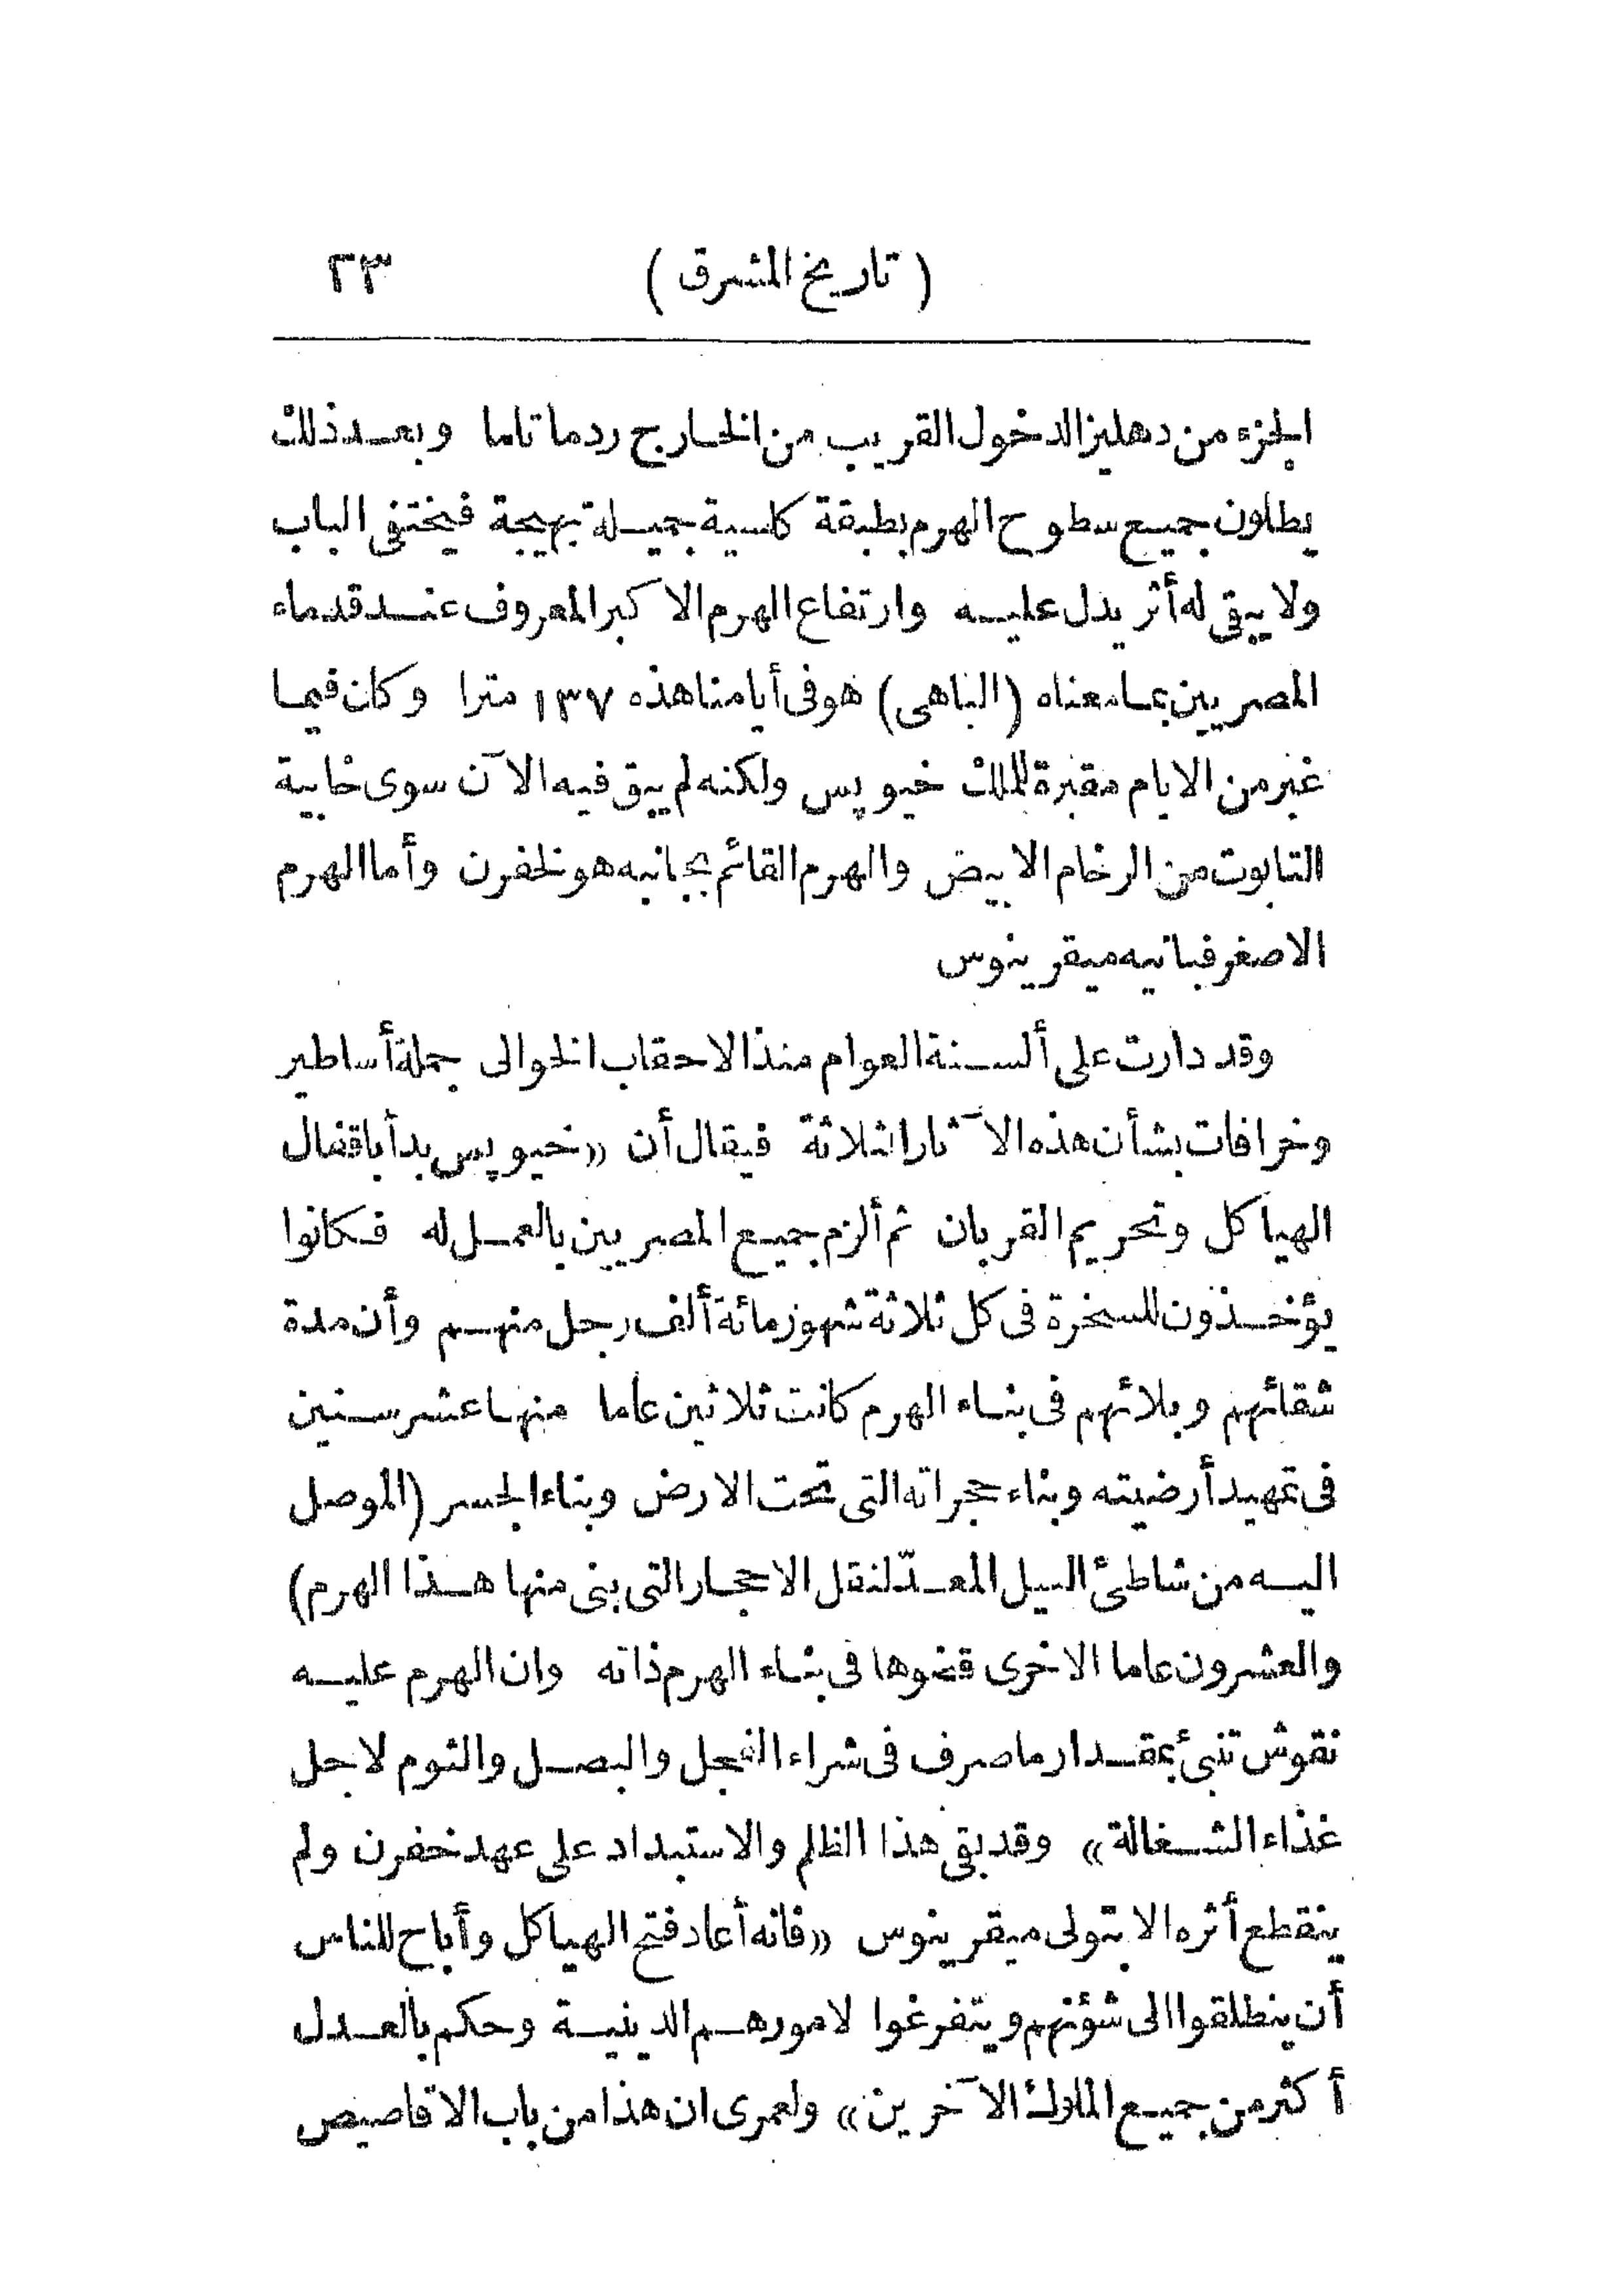 ( تاريخ المشرق ) ٢٣
الجزء من دهليز الدخول القريب من الخارج ردما تاما وبعد ذلك
يطلون جميع سطوح الهرم بطبقة كلسية جميلة بهيجة فيختفى الباب
ولا يبقى له أثر يدل عليه وارتفاع الهرم الاكبر المعروف عند قدماء
المصريين بما معناه (الباهى) هو فى أيامنا هذه ١٣٧ مترا وكان فيما
غبر من الايام مقبرة للملك خيوپس ولكنه لم يبق فيه الآن سوى خابية
التابوت من الرخام الابيض والهرم القائم بجانبه هو لخفرن وأما الهرم
الاصغر فبانيه ميقرينوس
وقد دارت على ألسنة العوام منذ الاحقاب الخوالى جملة أساطير
وخرافات بشأن هذه الآثار الثلاثة فيقال أن «خيوپس بدأ باقفال
الهياكل وتحريم القربان ثم ألزم جميع المصريين بالعمل له فكانوا
يؤخذون للسخرة فى كل ثلاثة شهور مائة ألف رجل منهم وأن مدة
شقائهم وبلائهم فى بناء الهرم كانت ثلاثين عاما منها عشر سنين
فى تمهيد أرضيته وبناء حجراته التى تحت الارض وبناء الجسر (الموصل
اليه من شاطئ النيل المعدّ لنقل الاحجار التى بنى منها هذا الهرم)
والعشرون عاما الاخرى قضوها فى بناء الهرم ذاته وان الهرم عليه
نقوش تنبئ بمقدار ما صرف فى شراء الفجل والبصل والثوم لاجل
غذاء الشغالة» وقد بقى هذا الظلم والاستبداد على عهد خفرن ولم
ينقطع أثره الا بتولى ميقرينوس «فانه أعاد فتح الهياكل وأباح للناس
أن ينطلقوا الى شؤنهم ويتفرغوا لامورهم الدينية وحكم بالعدل
أكثر من جميع الملوك الآخرين» ولعمرى ان هذا من باب الاقاصيص